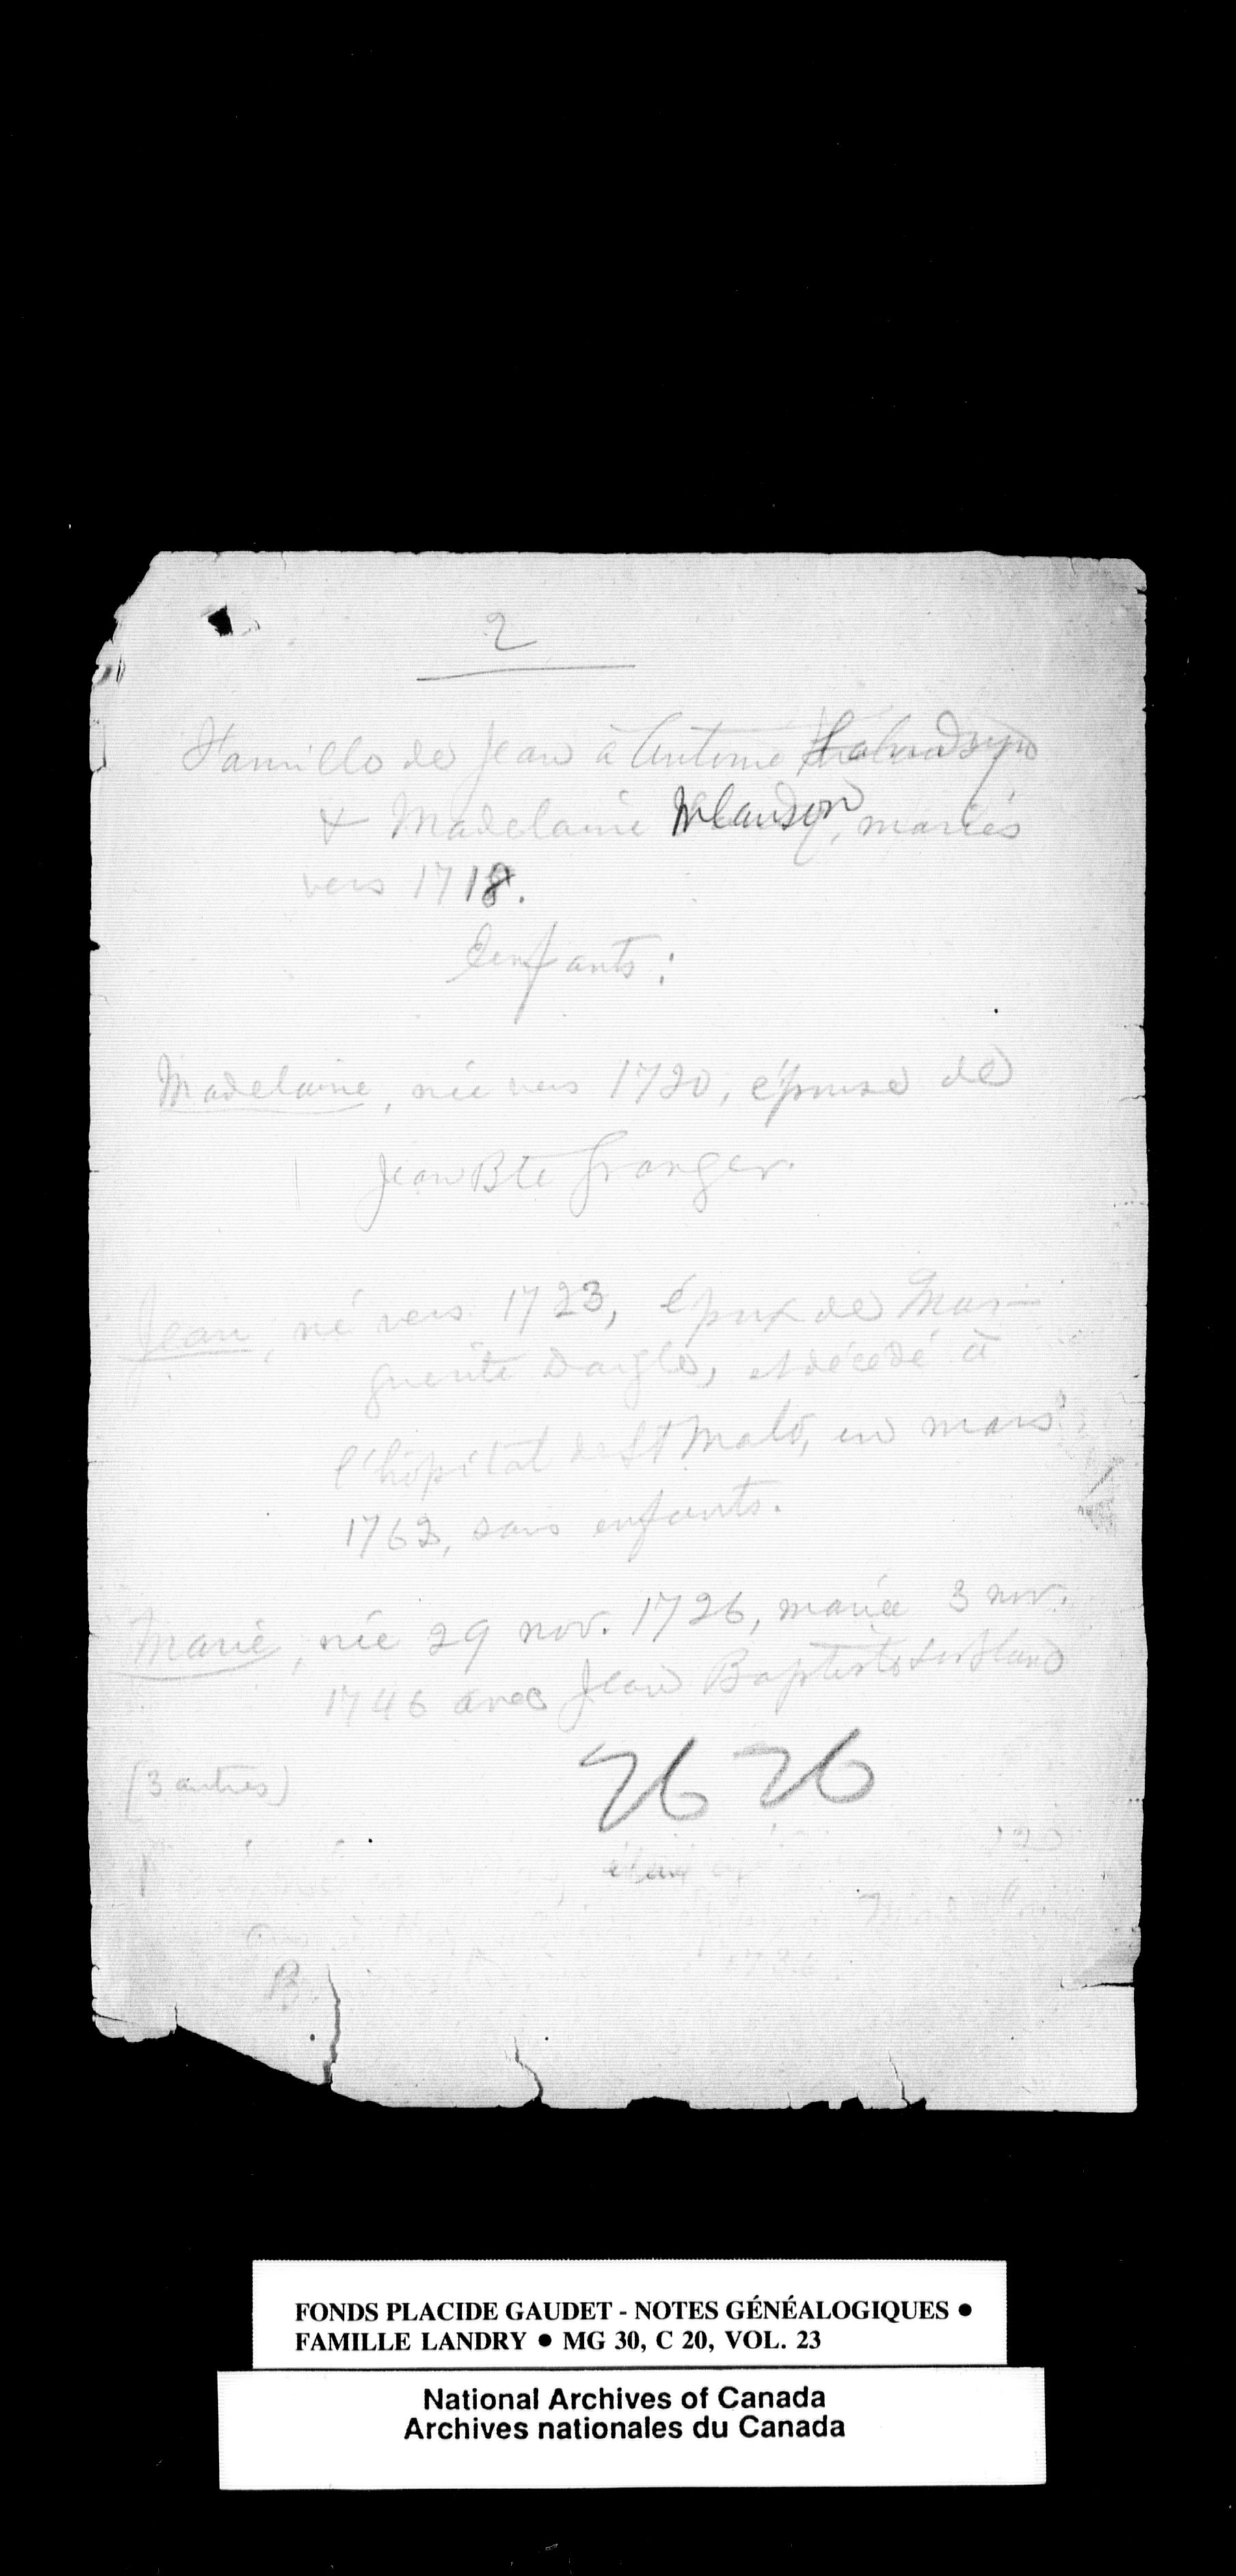 2
Famille de Jean à Antoine
& Madelaine Melanson, mariés
vers 1718.
Enfants:
Madelaine, née vers 1720, épouse de
Jean Bte Granger.
Jean, né vers 1723, époux de Mar-
guerite Daigle, et décédé à
l'hôpital de St Malo, en mars
1763, sans enfants.
Marie, née 29 nov. 1726, mariée 3 nov.
1746 avec Jean Baptiste LeBlanc
(3 autres)
26 26
B.
FONDS PLACIDE GAUDET - NOTES GÉNÉALOGIQUES ●
FAMILLE LANDRY ● MG 30, C 20, VOL. 23
National Archives of Canada
Archives nationales du Canada